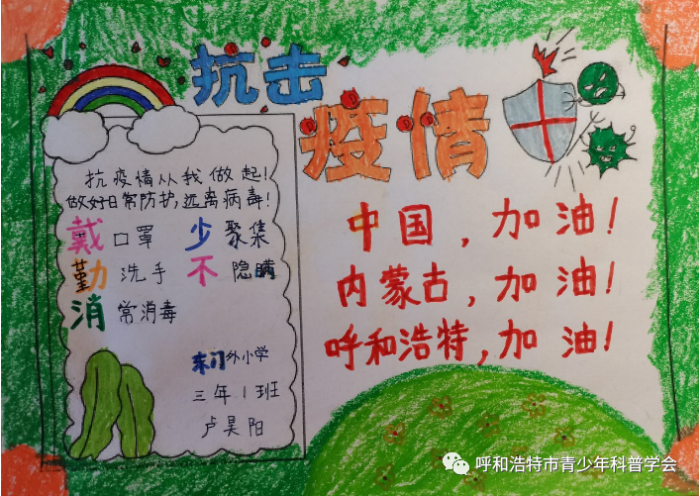 抗击
疫情
抗疫情从我做起!
做好日常防护,远离病毒!
戴口罩 少聚集
勤洗手 不隐瞒
消常消毒
东门外小学
三年1班
卢昊阳
中国,加油!
内蒙古,加油!
呼和浩特,加油!
呼和浩特市青少年科普学会